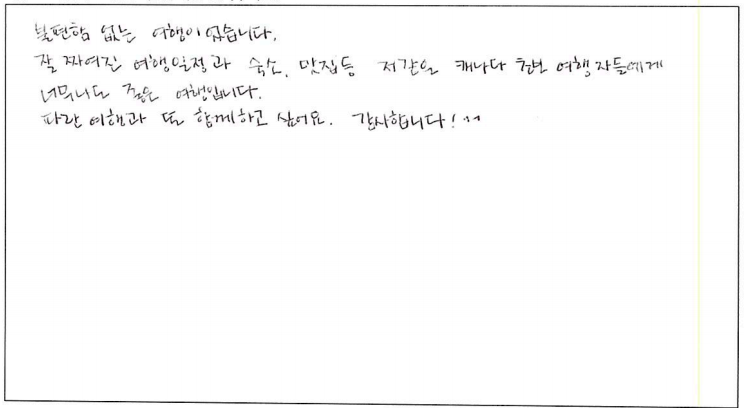 불편함 없는 여행이였습니다.
잘 짜여진 여행일정과 숙소, 맛집등 저같은 캐나다 초보 여행자들에게
너무나도 좋은 여행입니다.
파란 여행과 또 함께하고 싶어요. 감사합니다! ^^